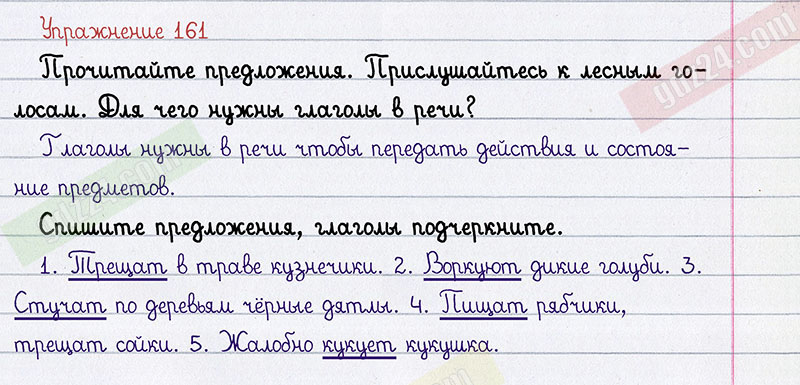 Упражнение 161
Прочитайте предложения. Прислушайтесь к лесным го-
лосам. Для чего нужны глаголы в речи?
Глаголы нужны в речи чтобы передать действия и состоя-
ние предметов.
Спишите предложения, глаголы подчеркните.
1. Трещат в траве кузнечики. 2. Воркуют дикие голуби. 3.
Стучат по деревьям чёрные дятлы. 4. Пищат рябчики,
трещат сойки. 5. Жалобно кукует кукушка.
gdz24.com
gdz24.com